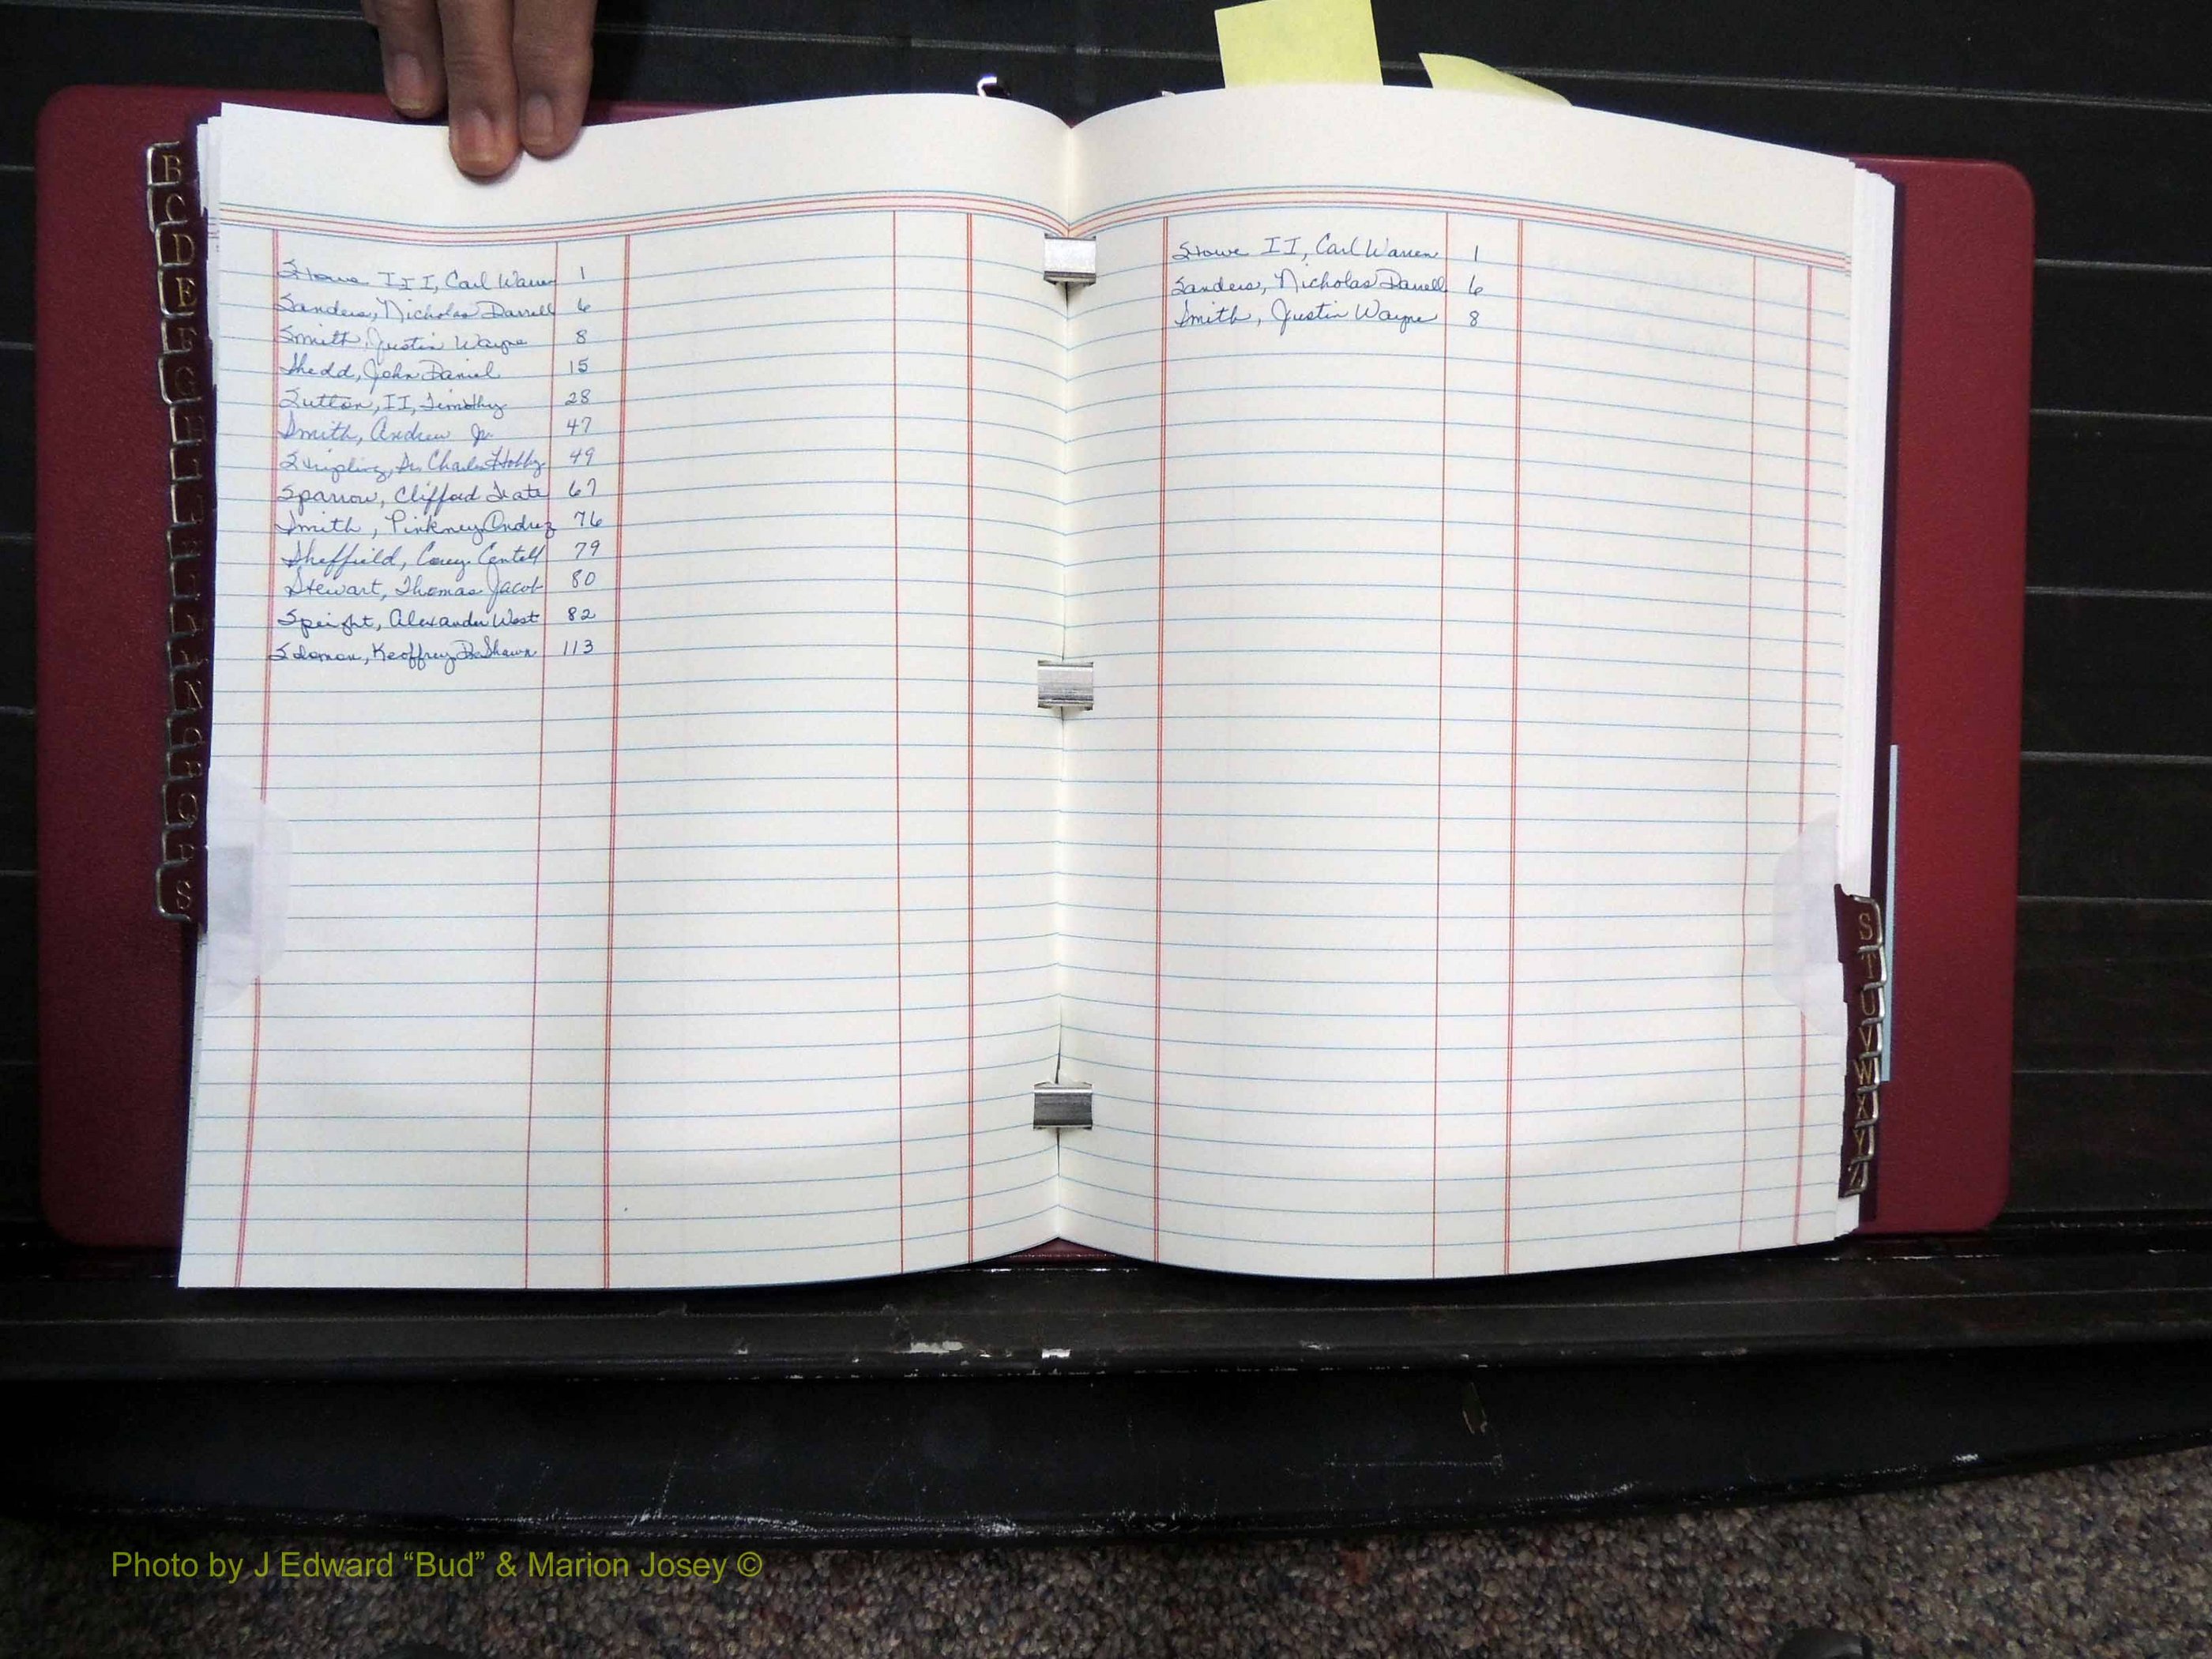 Stowe III, Carl Warren 1
Sanders, Nicholas Darrell 6
Smith, Justin Wayne 8
Shedd, John Daniel 15
Sutton, II, Timothy 28
Smith, Andrew Jr. 47
Stripling, Dr. Charles Hobby 49
Sparrow, Clifford Tate 67
Smith, Pinkney Andrez 76
Sheffield, Corey 79
Stewart, Thomas Jacob 80
Speight, Alexander West 82
Solomon, Keoffrey DeShawn 113
Stowe II, Carl Warren 1
Sanders, Nicholas Darrell 6
Smith, Justin Wayne 8
B
C
D
E
F
G
H
N
P
Q
S
S
T
U
V
W
X
Y
Z
Photo by J Edward “Bud” & Marion Josey ©